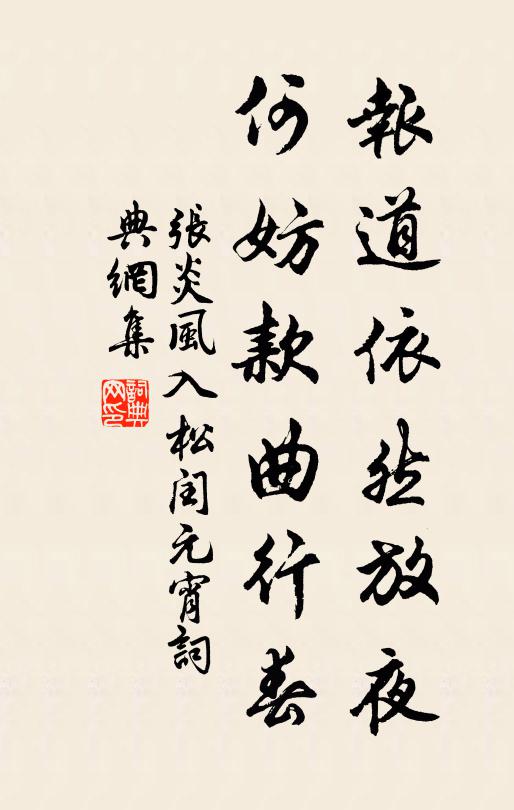 報道依然放夜
何妨款曲行春
張炎風入松閏元宵詞
典網集
詞典网印